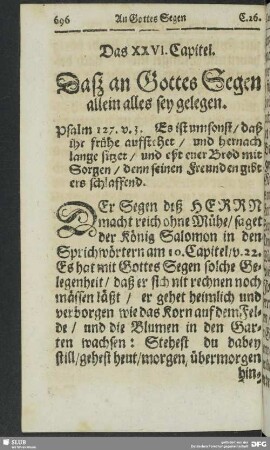 696 An Gottes Segen C.26.
Das XXVI. Capitel.
Dasz an Gottes Segen
allein alles sey gelegen.
Psalm 127. v. 3. Es ist umsonst / daß
ihr frühe auffstehet / und hernach
lange sitzet / und eßt euer Brod mit
Sorgen / denn seinen Freunden gibt
ers schlaffend.
DEr Segen deß HERRN
macht reich ohne Mühe / saget
der König Salomon in den
Sprichwörtern am 10. Capitel / v. 22.
Es hat mit Gottes Segen solche Ge-
legenheit / daß er sich nit rechnen noch
mässen läßt / er gehet heimlich und
verborgen wie das Korn auf dem Fel-
de / und die Blumen in den Gar-
ten wachsen: Stehest du dabey
still / gehest heut / morgen / übermorgen
hin-
SLUB
DFG